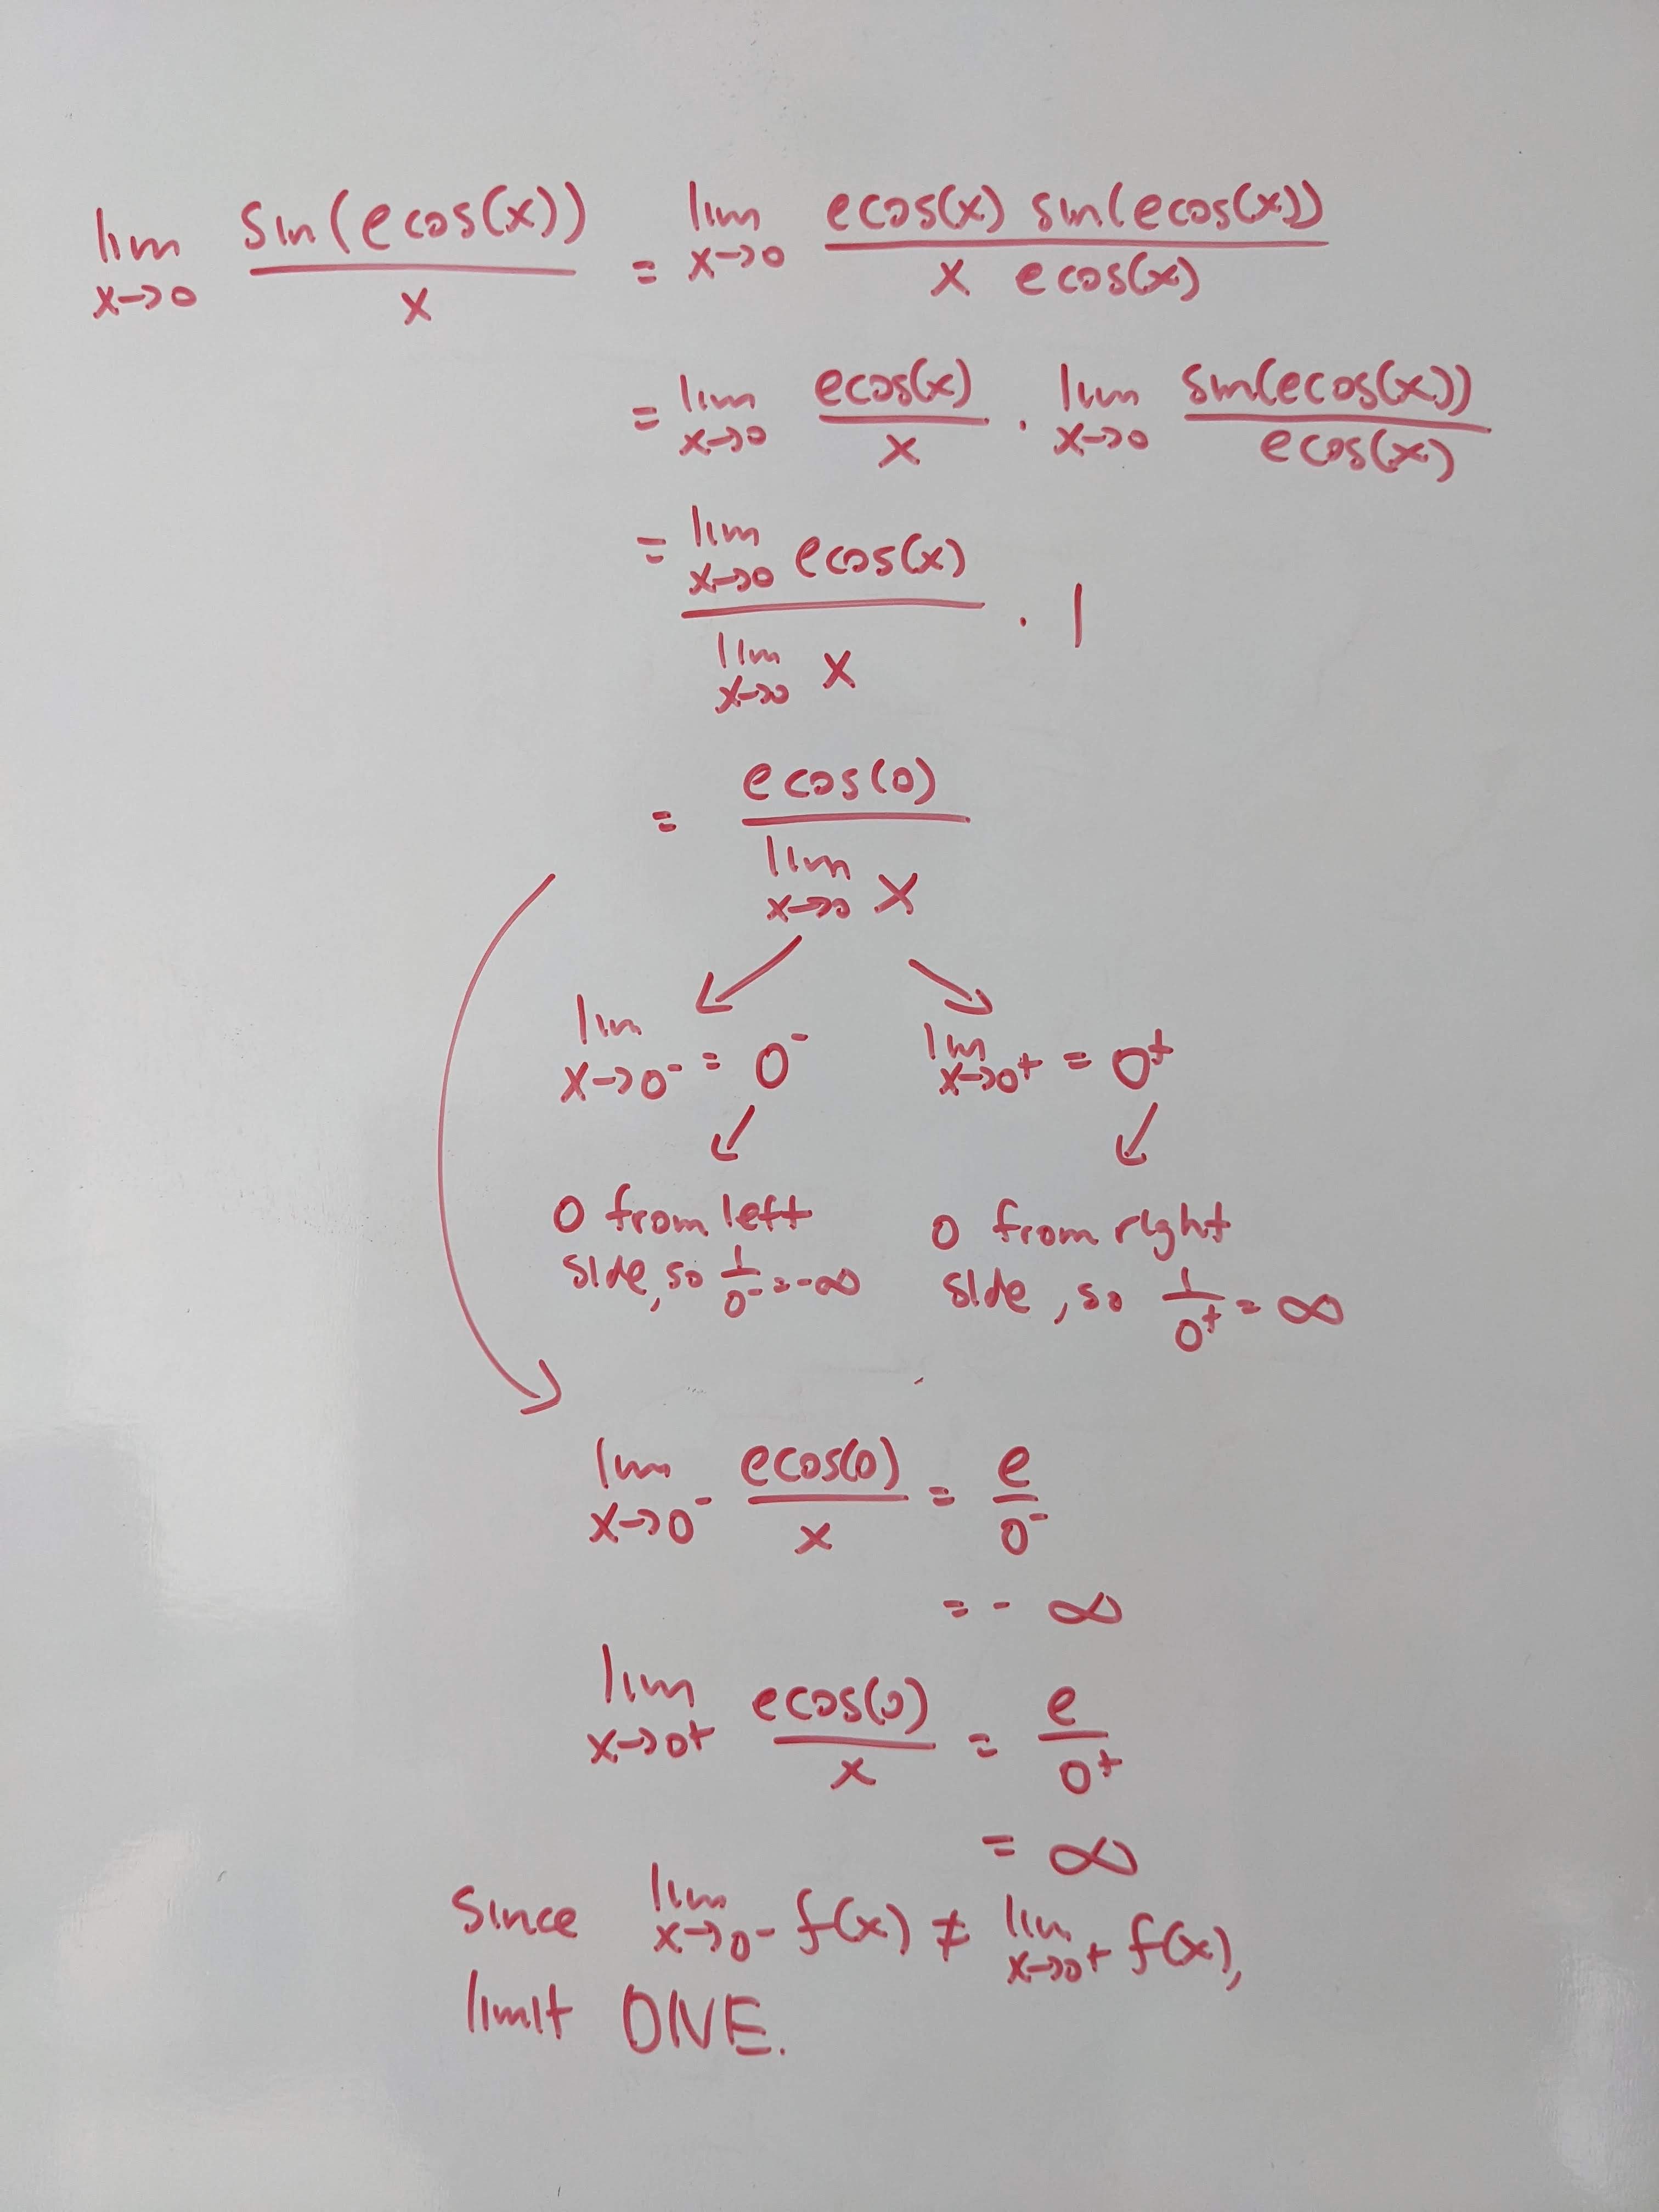 lim x→0 sin(ecos(x)) / x = lim x→0 ecos(x) sin(ecos(x)) / x ecos(x)
= lim x→0 ecos(x) / x · lim x→0 sin(ecos(x)) / ecos(x)
= lim x→0 ecos(x) / lim x→0 x · 1
= ecos(0) / lim x→0 x
lim x→0⁻ = 0⁻ lim x→0⁺ = 0⁺
0 from left 0 from right
side, so 1/0⁻ = -∞ side, so 1/0⁺ = ∞
lim x→0⁻ ecos(0) / x = e / 0⁻
= - ∞
lim x→0⁺ ecos(0) / x = e / 0⁺
= ∞
Since lim x→0⁻ f(x) ≠ lim x→0⁺ f(x),
limit DNE.